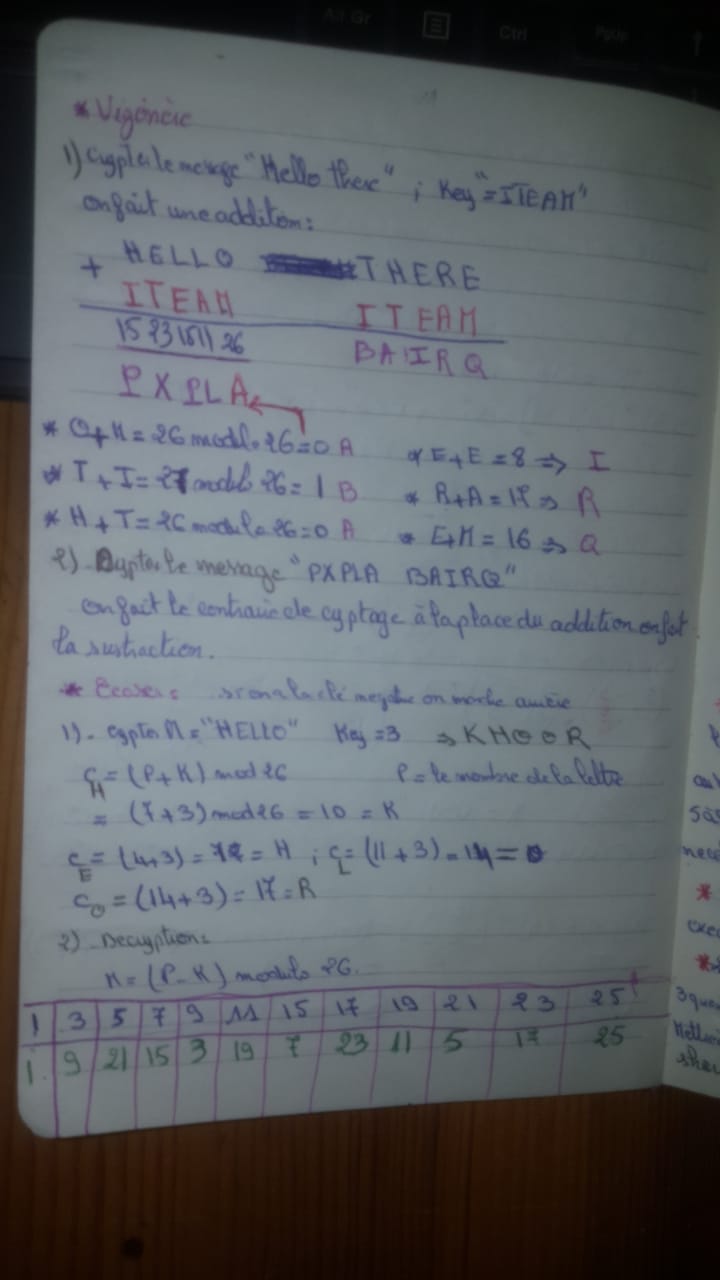 Alt Gr Ctrl PgUp
* Vigénère
1) Crypter le message "Hello there" ; Key "=ITEAM"
on fait une additon:
+ HELLO THERE
ITEAM ITEAM
15 23 15 11 26 BAIRQ
PXPLA
* O+M = 26 modulo 26 = 0 A * E+E = 8 => I
* T+I = 27 modulo 26 = 1 B * R+A = 17 => R
* H+T = 26 modulo 26 = 0 A * E+M = 16 => Q
2) Dypter le message "PXPLA BAIRQ"
on fait le contraire de cyptage à la place du addition on fait
la sustraction.
* si on a la clé negative on marche
1)- crypter M = "HELLO" Key =3 => KHOOR
C_H = (P+K) mod 26 P = le nombre de la lettre
= (7+3) mod 26 = 10 = K
C_E = (4+3) = 7 = H ; C_L = (11+3) = 14 = O
C_O = (14+3) = 17 = R
2) Decryption:
M = (P-K) modulo 26.
1 3 5 7 9 11 15 17 19 21 23 25
1 9 21 15 3 19 7 23 11 5 17 25